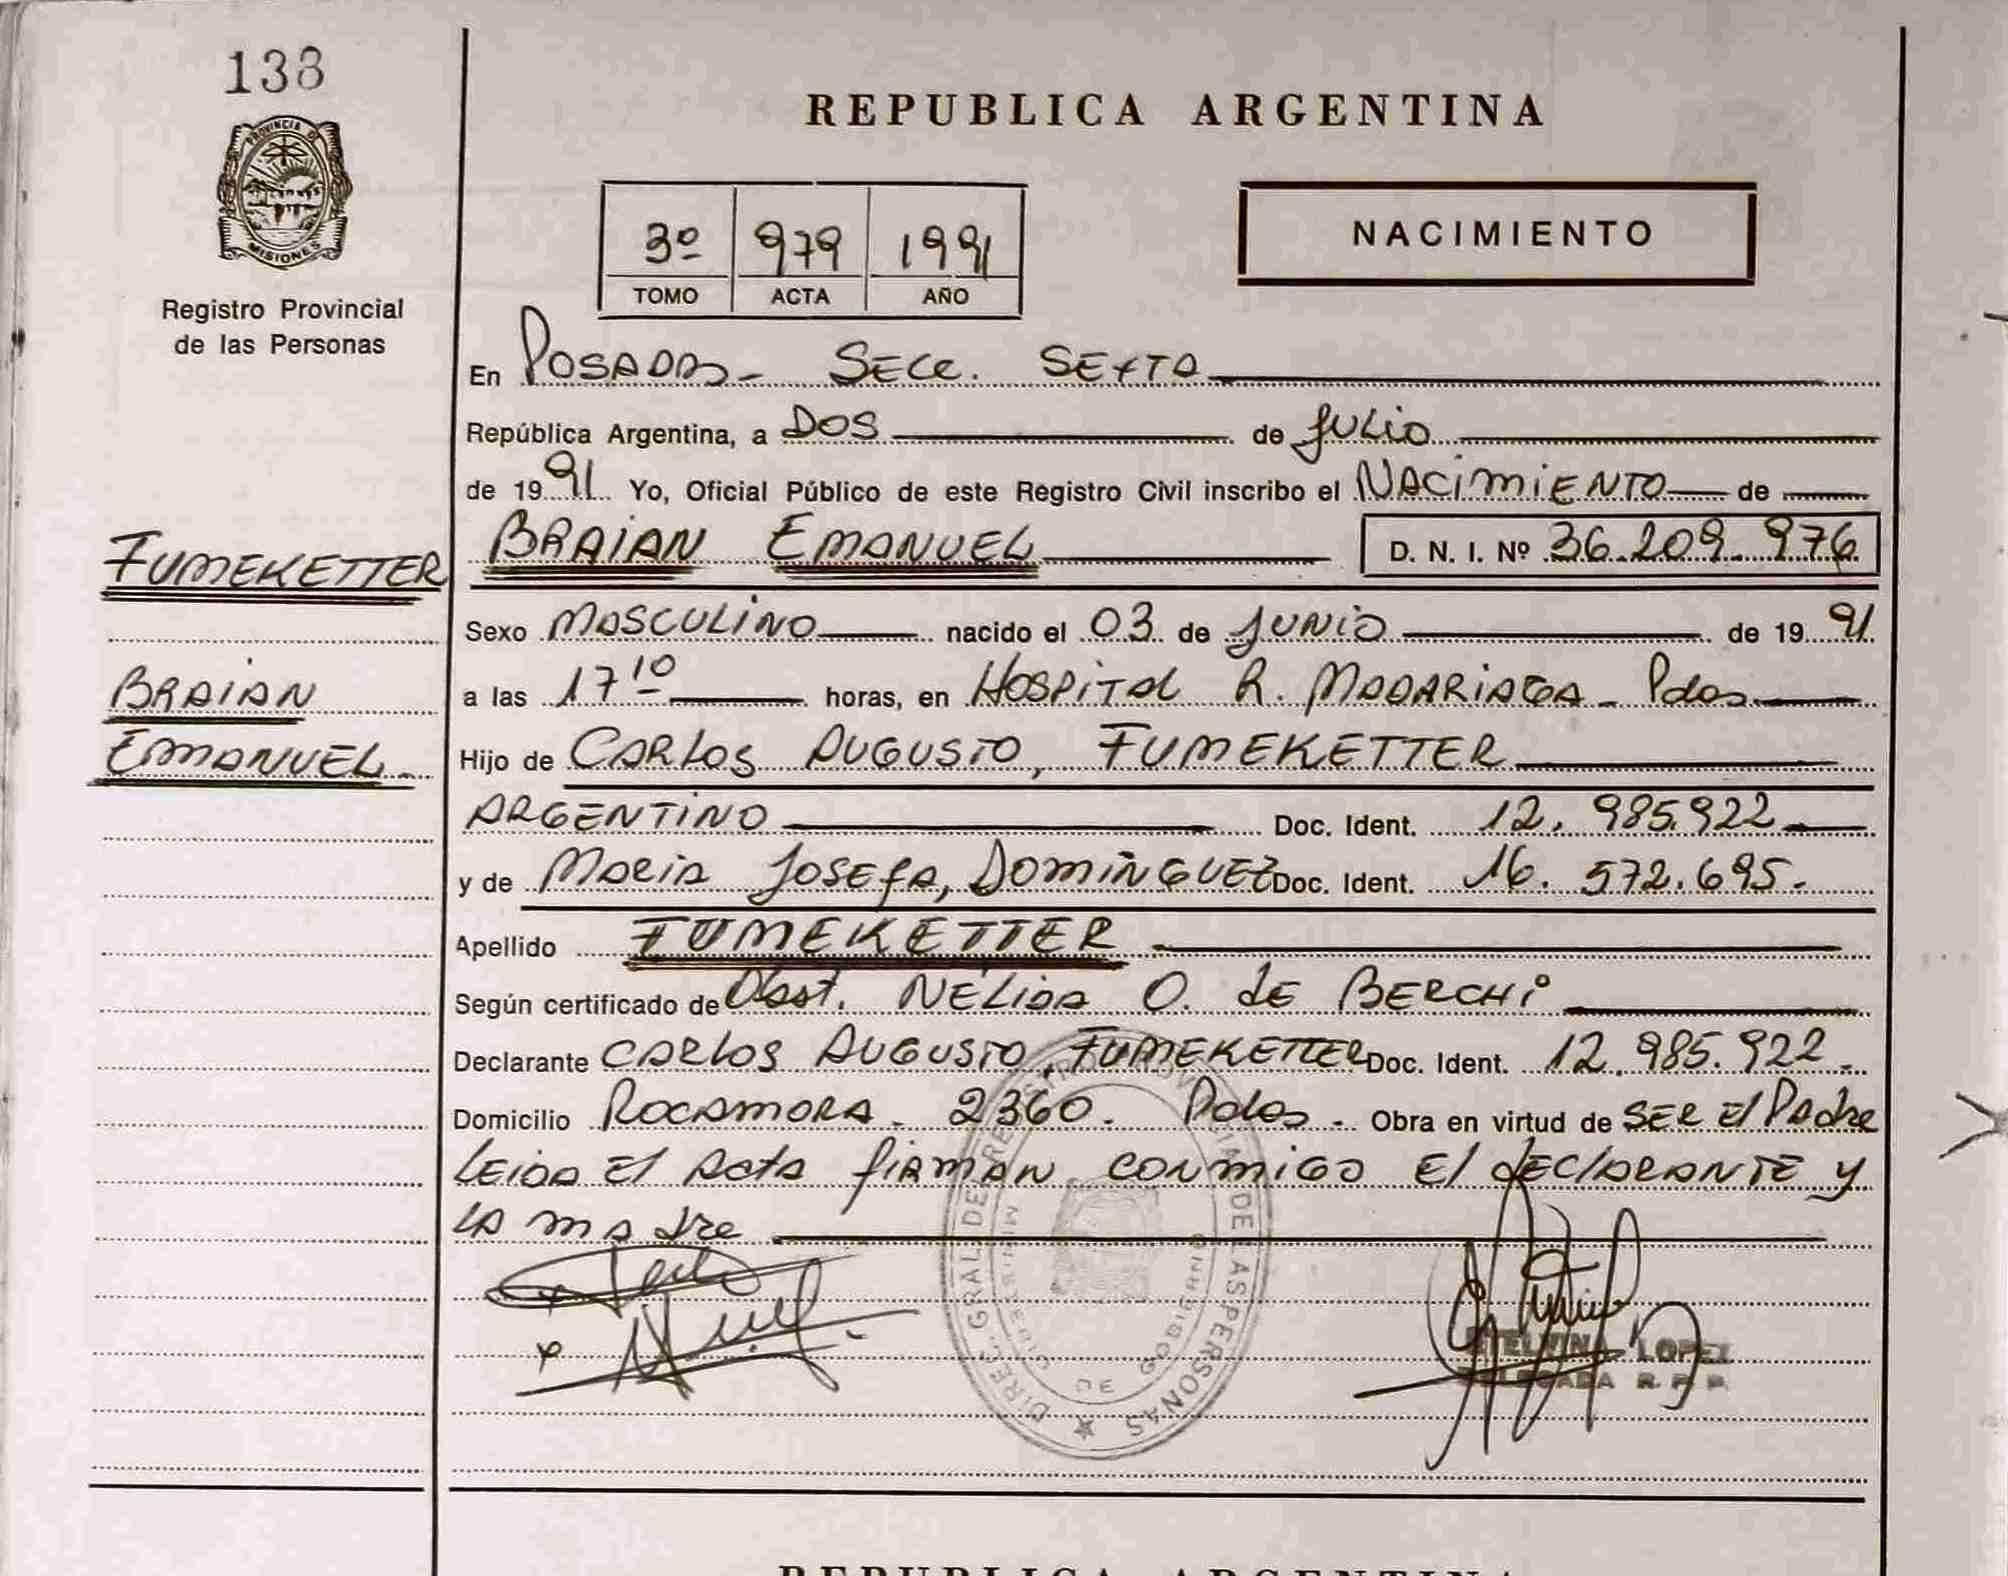 138
PROVINCIA D
MISIONES
Registro Provincial
de las Personas
REPUBLICA ARGENTINA
3º 979 1991
TOMO ACTA AÑO
NACIMIENTO
En Posadas - Secc. Sexta
República Argentina, a Dos de Julio
de 1991 Yo, Oficial Público de este Registro Civil inscribo el Nacimiento de
FUMEKETTER
BRAIAN EMANUEL D. N. I. Nº 36.209.976
Sexo Masculino nacido el 03 de Junio de 1991
BRAIAN
a las 17 10 horas, en Hospital R. Madariaga - Pdas
EMANUEL -
Hijo de Carlos Augusto, FUMEKETTER
Argentino Doc. Ident. 12.985.922
y de Maria Josefa, Dominguez Doc. Ident. 16.572.695.
Apellido FUMEKETTER
Según certificado de Obst. Nélida O. de Berchi
Declarante Carlos Augusto, Fumeketter Doc. Ident. 12.985.922 -
Domicilio Rocamora - 2360. Pdas - Obra en virtud de ser el Padre
Leida el acta firman conmigo el declarante y
la madre
DIREC. GRAL. DE REGISTRO PROVINCIAL DE LAS PERSONAS
MINISTERIO DE GOBIERNO
ETELVINA LOPEZ
DELEGADA R. P. P.
REPUBLICA ARGENTINA